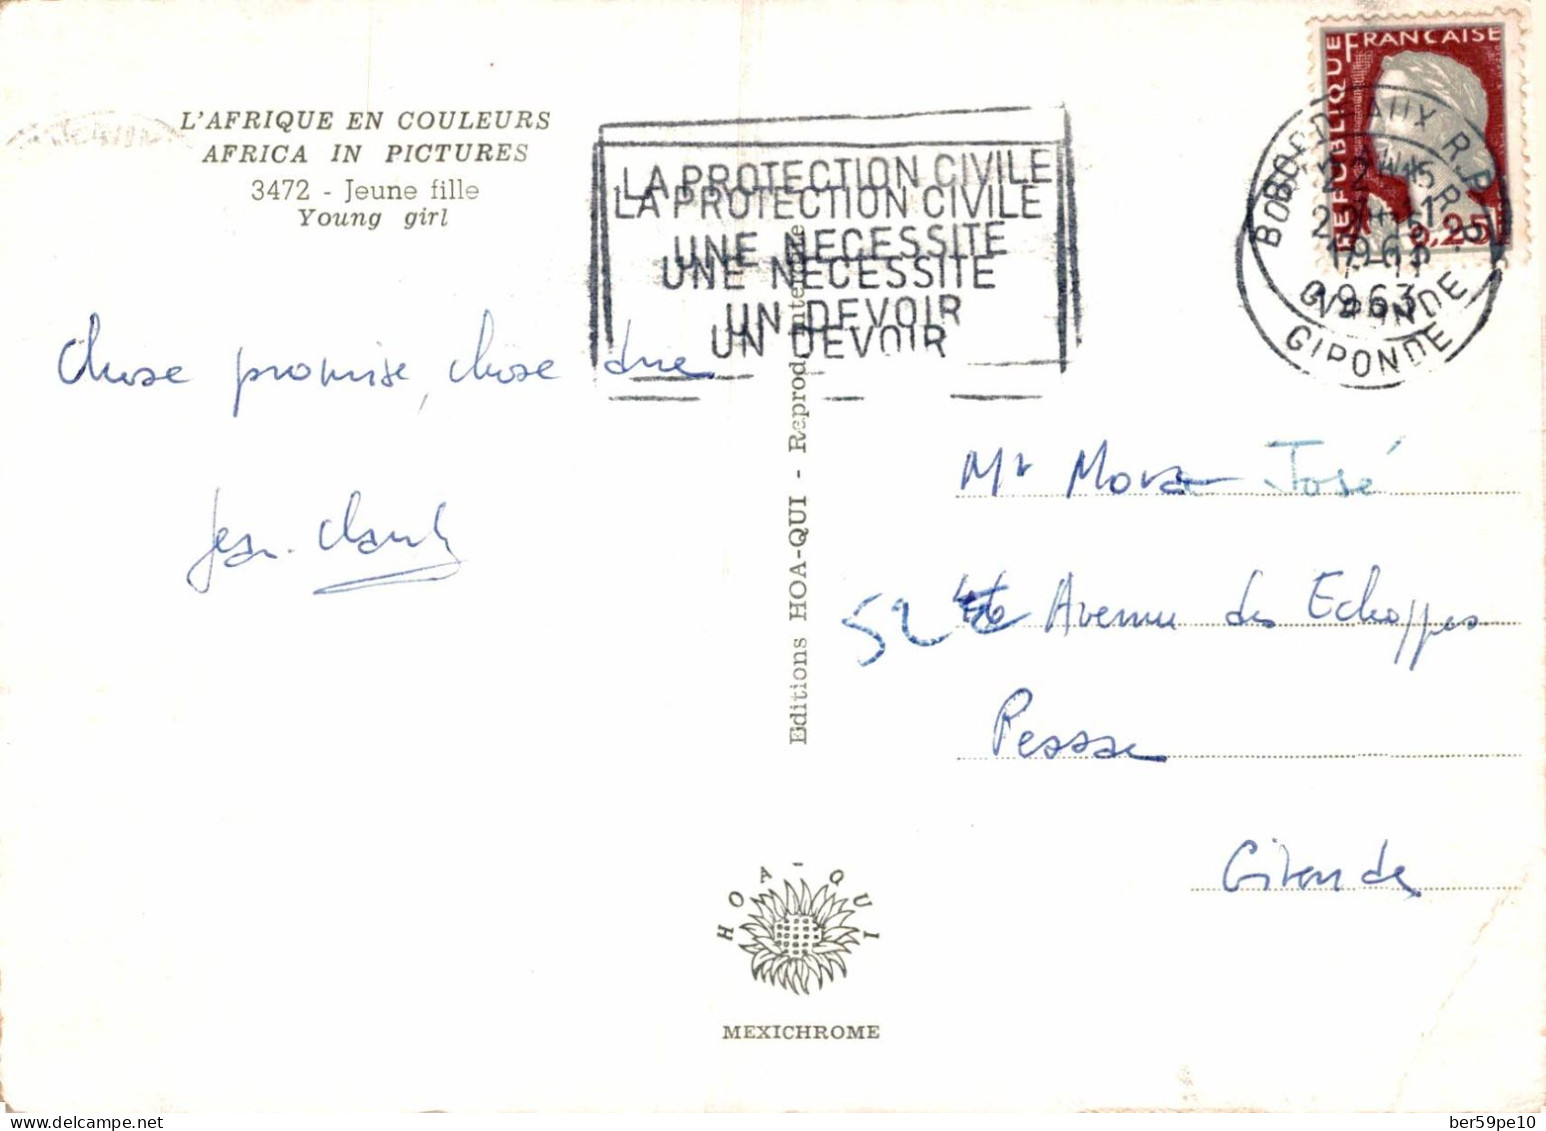 L'AFRIQUE EN COULEURS
AFRICA IN PICTURES
3472 - Jeune fille
Young girl
Chose promise, chose due
Jean-Claude
LA PROTECTION CIVILE
LA PROTECTION CIVILE
UNE NECESSITE
UNE NECESSITE
UN DEVOIR
UN DEVOIR
Editions HOA-QUI - Reprod. interdite
REPUBLIQUE FRANCAISE
0,25
BORDEAUX R.P.
1963
GIRONDE
GIRONDE
Mr Mora José
52 46 Avenue des Echoppes
Pessac
Gironde
HOA-QUI
MEXICHROME
delcampe.net
ber59pe10